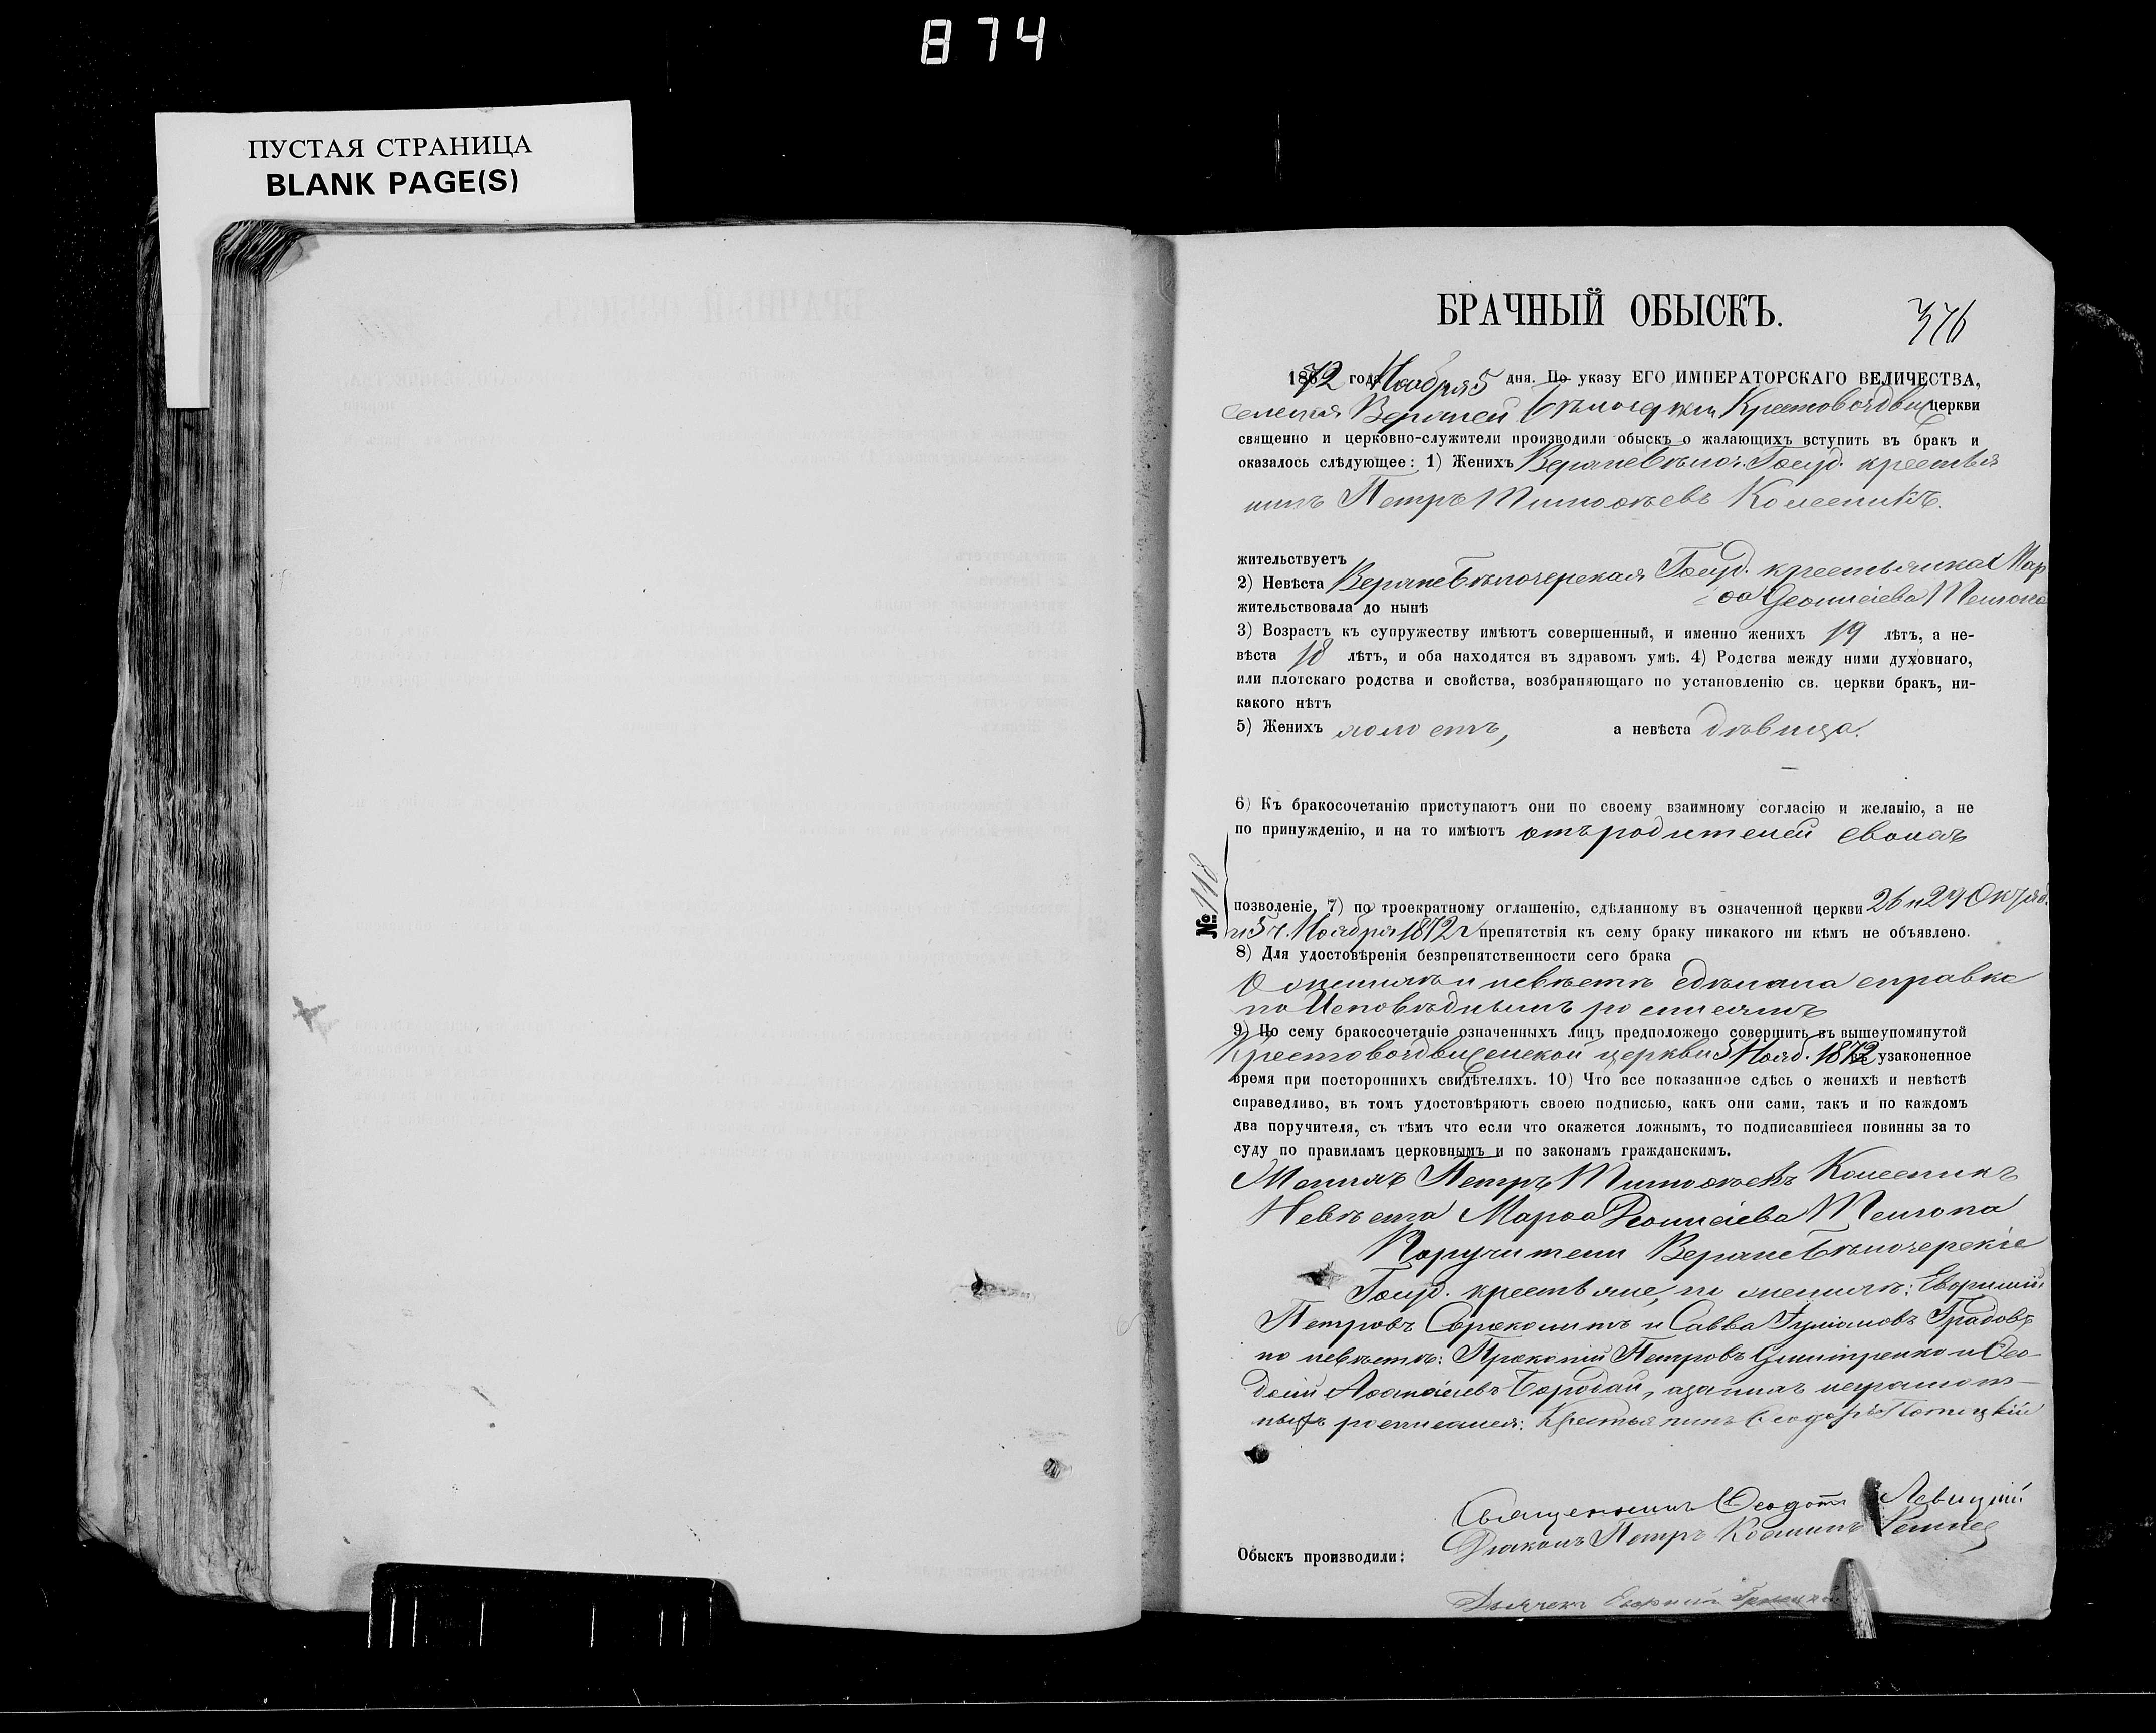 874
ПУСТАЯ СТРАНИЦА
BLANK PAGE(S)
БРАЧНЫЙ ОБЫСКЪ.
376
1872 года Ноября 5 дня. По указу ЕГО ИМПЕРАТОРСКАГО ВЕЛИЧЕСТВА,
селенія Верхней Крестовоздвиж церкви
священно и церковно-служители производили обыскъ о жалающихъ вступить въ бракъ и
оказалось слѣдующее: 1) Женихъ Верхнебѣлоз. Госуд. крестья
нинъ Петръ Тимоѳѣевъ Колесникъ.
жительствуетъ
2) Невѣста Верхнебѣлозерская Госуд. крестьянка Мар
ѳа Деонисіева
жительствовала до нынѣ
3) Возрастъ къ супружеству имѣютъ совершенный, и именно женихъ 19 лѣтъ, а не-
вѣста 18 лѣтъ, и оба находятся въ здравомъ умѣ. 4) Родства между ними духовнаго,
или плотскаго родства и свойства, возбраняющаго по установленію св. церкви бракъ, ни-
какого нѣтъ
5) Женихъ холостъ, а невѣста дѣвица.
6) Къ бракосочетанію приступаютъ они по своему взаимному согласію и желанію, а не
по принужденію, и на то имѣютъ отъ родителей своихъ
№ 118
позволеніе, 7) по троекратному оглашенію, сдѣланному въ означенной церкви 26 и 29 Октяб.
и 5 ч. Ноября 1872 г препятствія къ сему браку никакого ни кѣмъ не объявлено.
8) Для удостовѣренія безпрепятственности сего брака
О женихѣ и невѣстѣ сдѣлана справка
по Исповѣднымъ росписямъ
9) По сему бракосочетаніе означенныхъ лицъ предположено совершить въ вышеупомянутой
Крестовоздвиженской церкви 5 Нояб. 1872 въ узаконенное
время при постороннихъ свидѣтеляхъ. 10) Что все показанное сдѣсь о женихѣ и невѣстѣ
справедливо, въ томъ удостовѣряютъ своею подписью, какъ они сами, такъ и по каждомъ
два поручителя, съ тѣмъ что если что окажется ложнымъ, то подписавшіеся повинны за то
суду по правиламъ церковнымъ и по законамъ гражданскимъ.
Женихъ Петръ Тимоѳѣевъ Колесникъ
Невѣста Марѳа Деонисіева
Поручители Верхнебѣлозерскіе
Госуд. крестьяне, по женихѣ: Евѳимій
Петровъ и Савва Градовъ
по невѣстѣ: Прокопій Петровъ Дмитренко и Ѳео-
досій Аѳанасіевъ Бородай, а за нихъ неграмот-
ныхъ росписался: Крестьянинъ Ѳеодоръ
Священникъ Ѳеодотъ Левицкій
Діаконъ Петръ
Обыскъ производили:
Дьячекъ